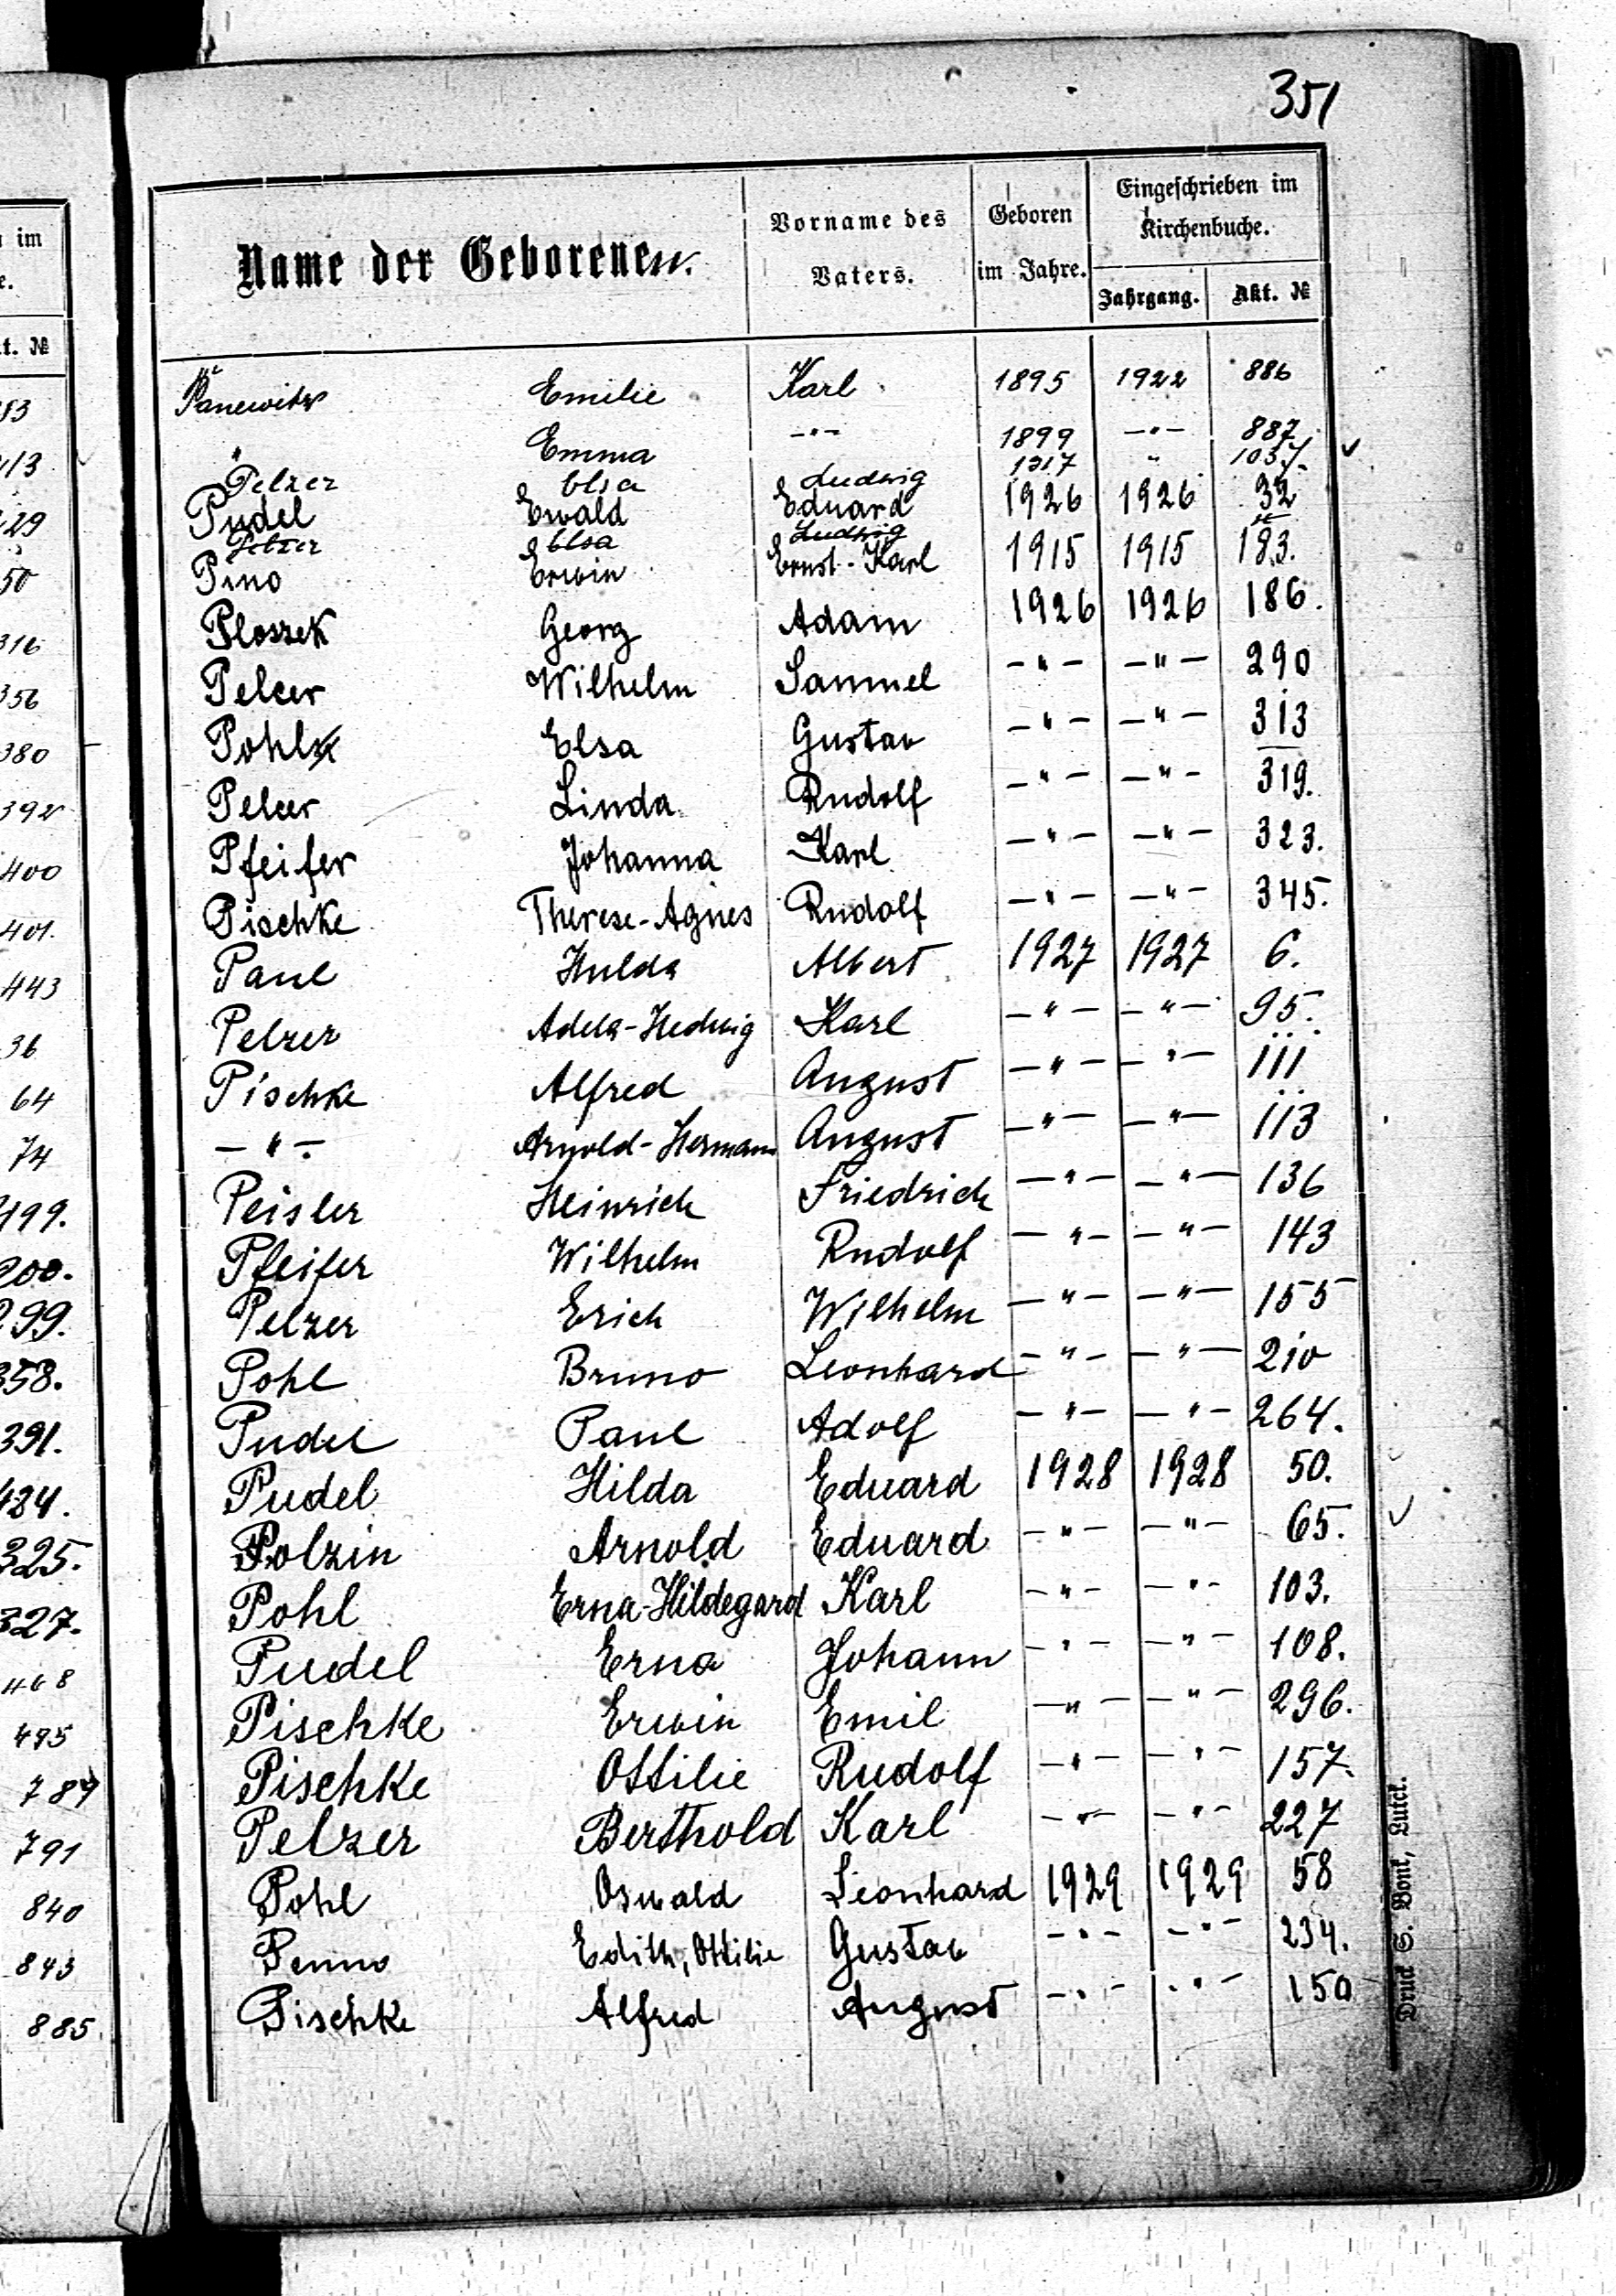 351
Name der Geborenen.
Vorname des Vaters.
Geboren im Jahre.
Eingeschrieben im Kirchenbuche.
Jahrgang. Akt. №
Panewitz Emilie Karl 1895 1922 886
" Emma -"- 1899 -"- 887
Pelzer Elsa Ludwig 1917 "
Pudel Ewald Eduard 1926 1926 32
Pelzer Elsa Ludwig
Pino Erwin Ernst-Karl 1915 1915 183.
Plossek Georg Adam 1926 1926 186.
Pelcer Wilhelm Samuel -"- -"- 290
Pohl Elsa Gustav -"- -"- 313
Pelcer Linda Rudolf -"- -"- 319.
Pfeifer Johanna Karl -"- -"- 323.
Pischke Therese-Agnes Rudolf -"- -"- 345.
Paul Hulda Albert 1927 1927 6.
Pelzer Adela-Hedwig Karl -"- -"- 95.
Pischke Alfred August -"- -"- 111
-"- Arnold-Hermann August -"- -"- 113
Peisler Heinrich Friedrich -"- -"- 136
Pfeifer Wilhelm Rudolf -"- -"- 143
Pelzer Erich Wilhelm -"- -"- 155
Pohl Bruno Leonhard -"- -"- 210
Pudel Paul Adolf -"- -"- 264.
Pudel Hilda Eduard 1928 1928 50.
Polzin Arnold Eduard -"- -"- 65.
Pohl Erna-Hildegard Karl -"- -"- 103.
Pudel Erna Johann -"- -"- 108.
Pischke Erwin Emil -"- -"- 296.
Pischke Ottilie Rudolf -"- -"- 157.
Pelzer Berthold Karl -"- -"- 227
Pohl Oswald Leonhard 1929 1929 58
Penno Edith, Ottilie Gustav -"- -"- 234.
Pischke Alfred August -"- -"- 150
Druck S. Bonk, Lutck.
im
e.
t. №
83
413
29
50
316
356
380
392
400
401.
443
36
64
74
199.
200.
299.
358.
391.
484.
325.
327.
468
495
789
791
840
843
885.